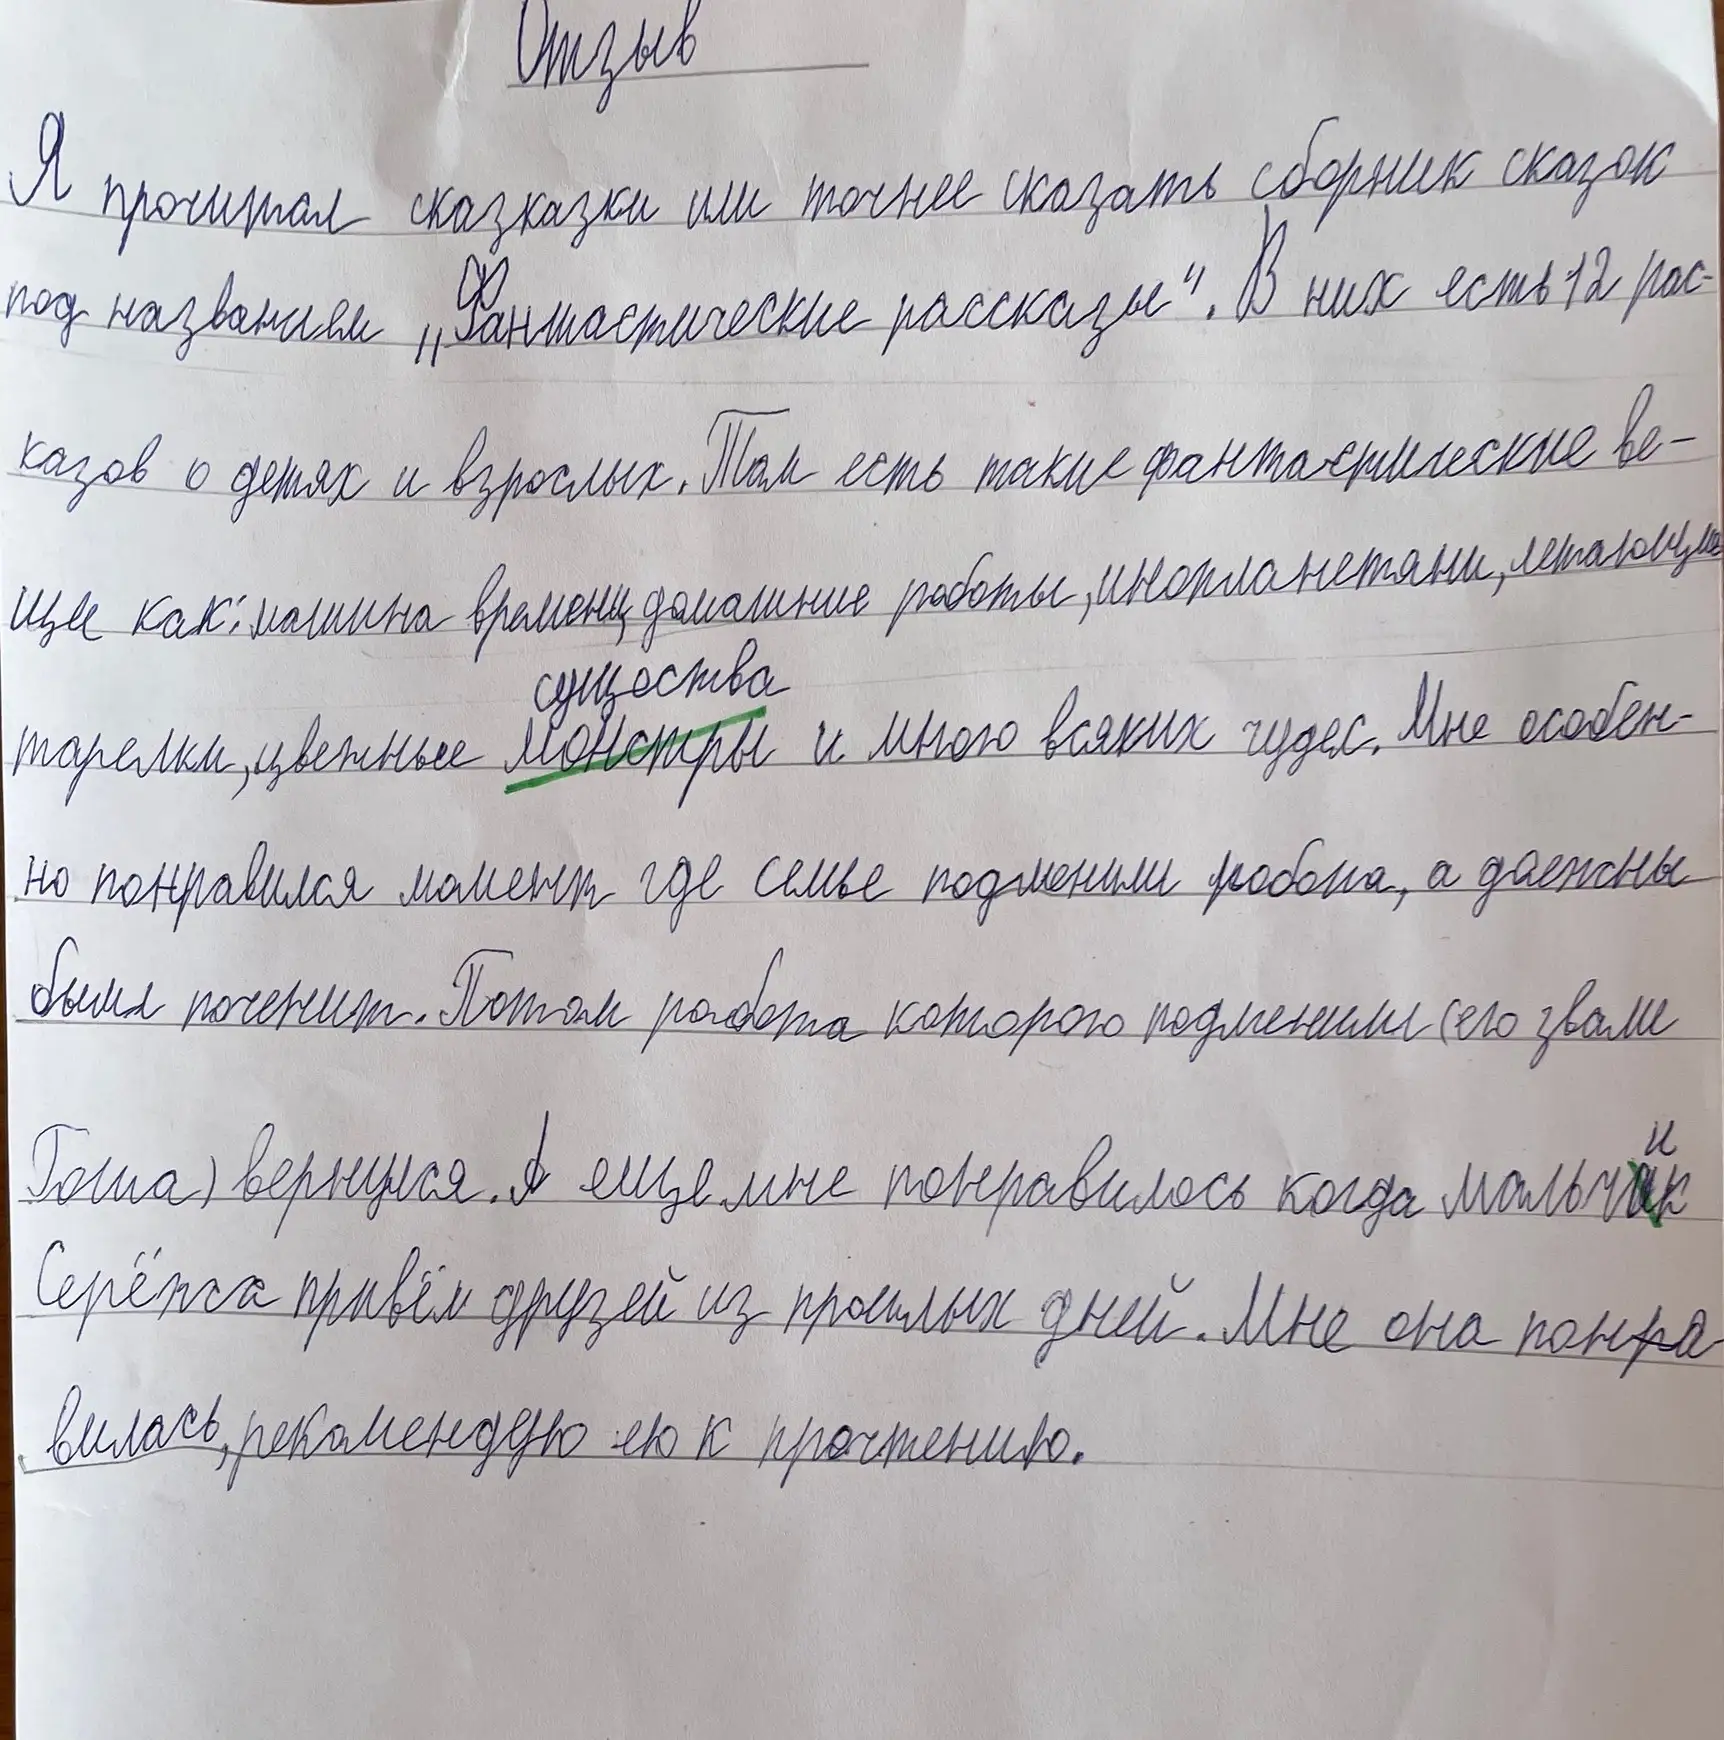 Отзыв
Я прочитал сказказки или точнее сказать сборник сказок
под названием „Фантастические рассказы". В них есть 12 рас-
казов о детях и взрослых. Там есть такие фантастические ве-
щи как: машина времени, домашние роботы, инопланетяни, летающие
существа
тарелки, цветные монстры и много всяких чудес. Мне особен-
но понравился момент где семье подменили робота, а должны
были поченит. Потом робота которого подменили (его звали
и
Гоша) вернулся. А еще мне понравилось когда мальчик
Серёжа привёл друзей из прошлых дней. Мне она понра
вилась, рекомендую ею к прочтению.